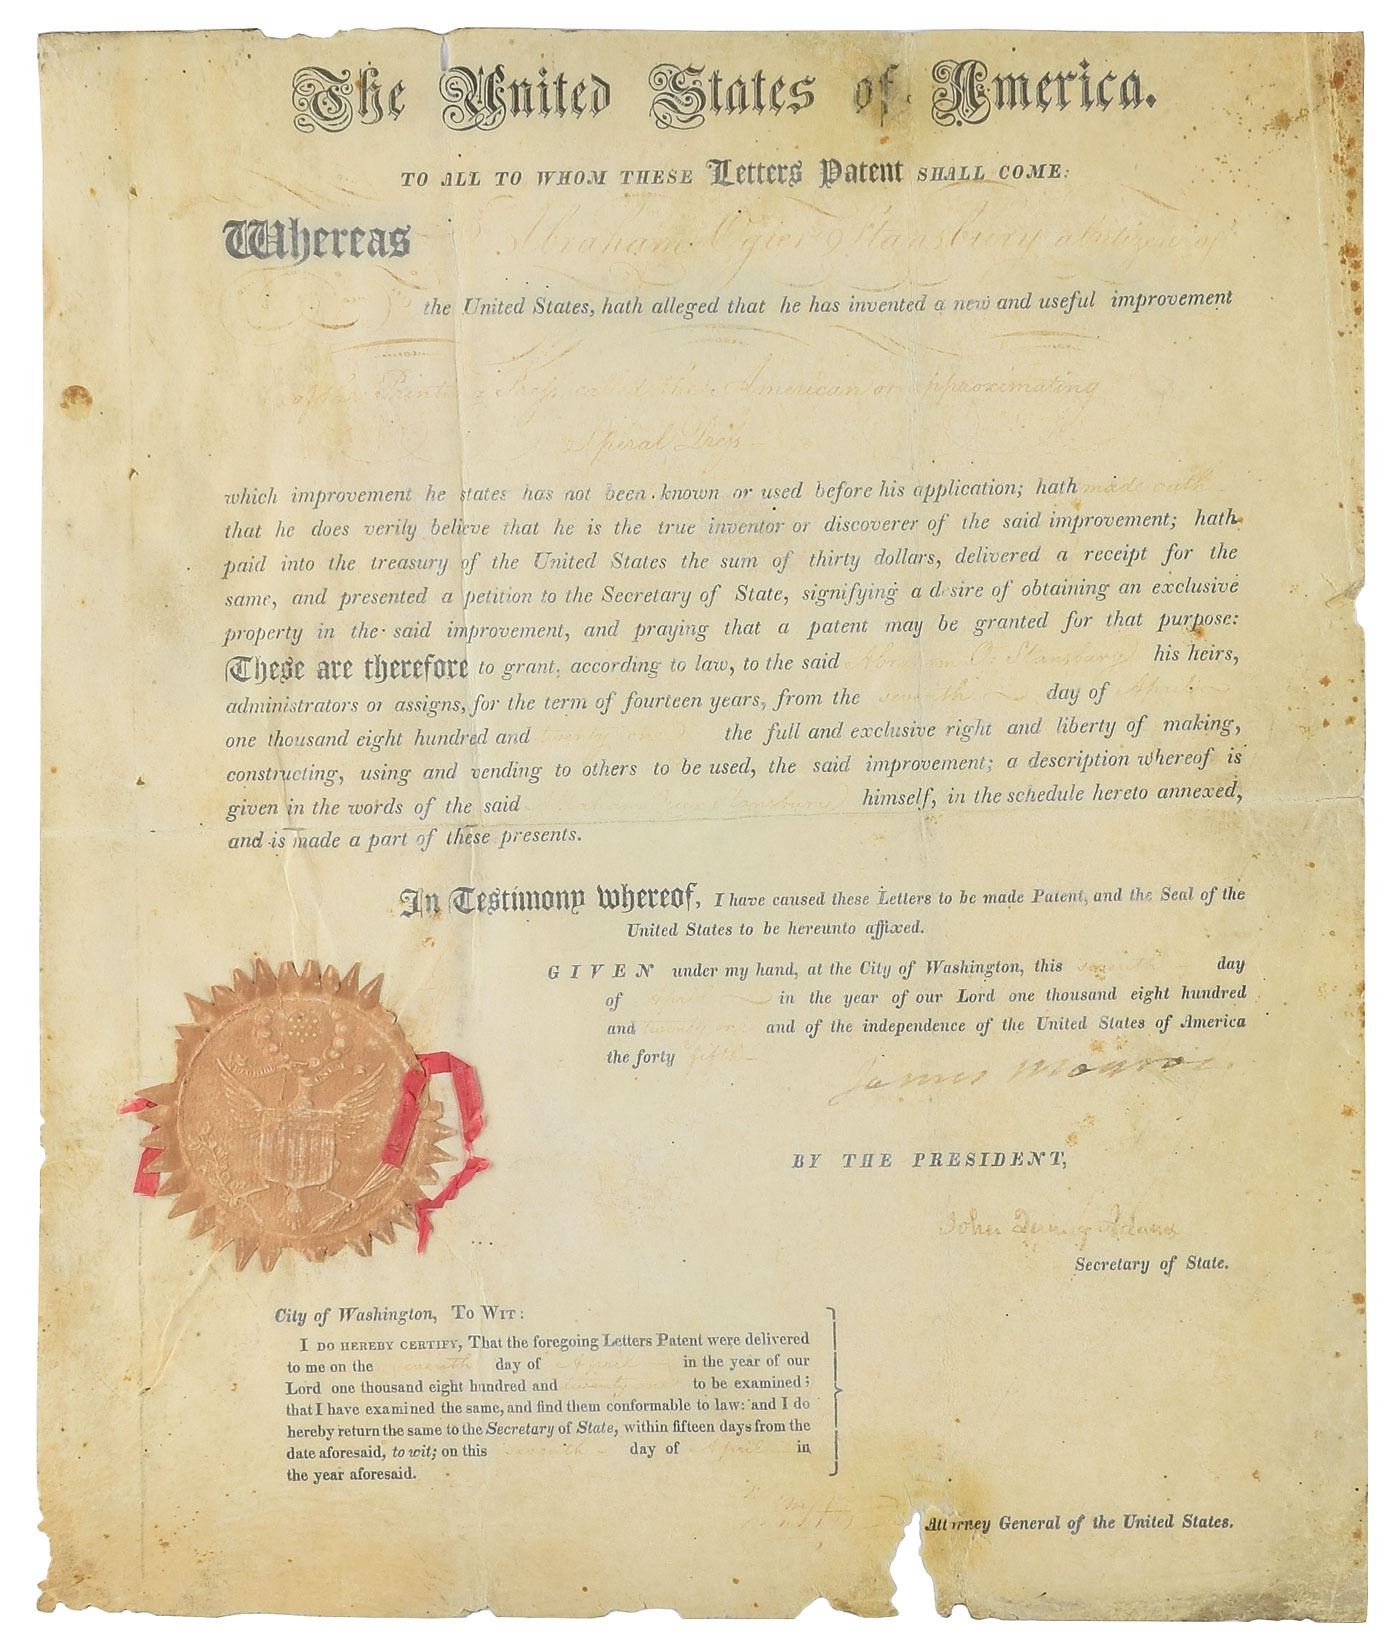 The United States of America.
TO ALL TO WHOM THESE Letters Patent SHALL COME:
Whereas Abraham Ogier Stansbury a Citizen of
the United States, hath alleged that he has invented a new and useful improvement
Printing Press called the American or approximating
Spiral Press
which improvement he states has not been known or used before his application; hath made oath
that he does verily believe that he is the true inventor or discoverer of the said improvement; hath
paid into the treasury of the United States the sum of thirty dollars, delivered a receipt for the
same, and presented a petition to the Secretary of State, signifying a desire of obtaining an exclusive
property in the said improvement, and praying that a patent may be granted for that purpose:
These are therefore to grant, according to law, to the said O. Stansbury his heirs,
administrators or assigns, for the term of fourteen years, from the seventh day of April
one thousand eight hundred and twenty one the full and exclusive right and liberty of making,
constructing, using and vending to others to be used, the said improvement; a description whereof is
given in the words of the said Stansbury himself, in the schedule hereto annexed,
and is made a part of these presents.
In Testimony whereof, I have caused these Letters to be made Patent, and the Seal of the
United States to be hereunto affixed.
GIVEN under my hand, at the City of Washington, this seventh day
of April in the year of our Lord one thousand eight hundred
and twenty one and of the independence of the United States of America
the forty fifth
James Monroe
BY THE PRESIDENT,
John Quincy Adams
Secretary of State.
City of Washington, TO WIT:
I DO HEREBY CERTIFY, That the foregoing Letters Patent were delivered
to me on the seventh day of April in the year of our
Lord one thousand eight hundred and twenty one to be examined;
that I have examined the same, and find them conformable to law: and I do
hereby return the same to the Secretary of State, within fifteen days from the
date aforesaid, to wit; on this seventh day of April in
the year aforesaid.
Attorney General of the United States.